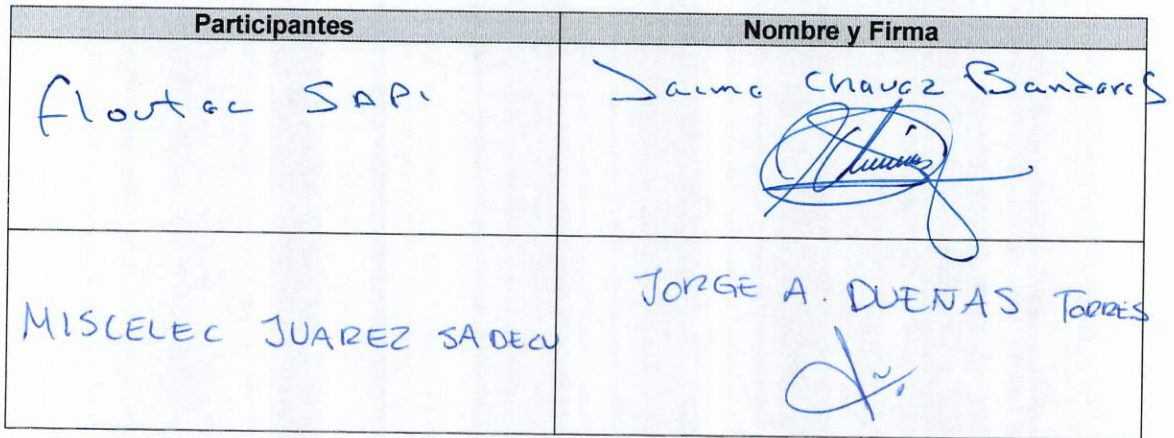 Participantes
Nombre y Firma
Floutec SAPI
Jaime Chavez Bandares
MISCELEC JUAREZ SADECV
JORGE A. DUENAS TORRES